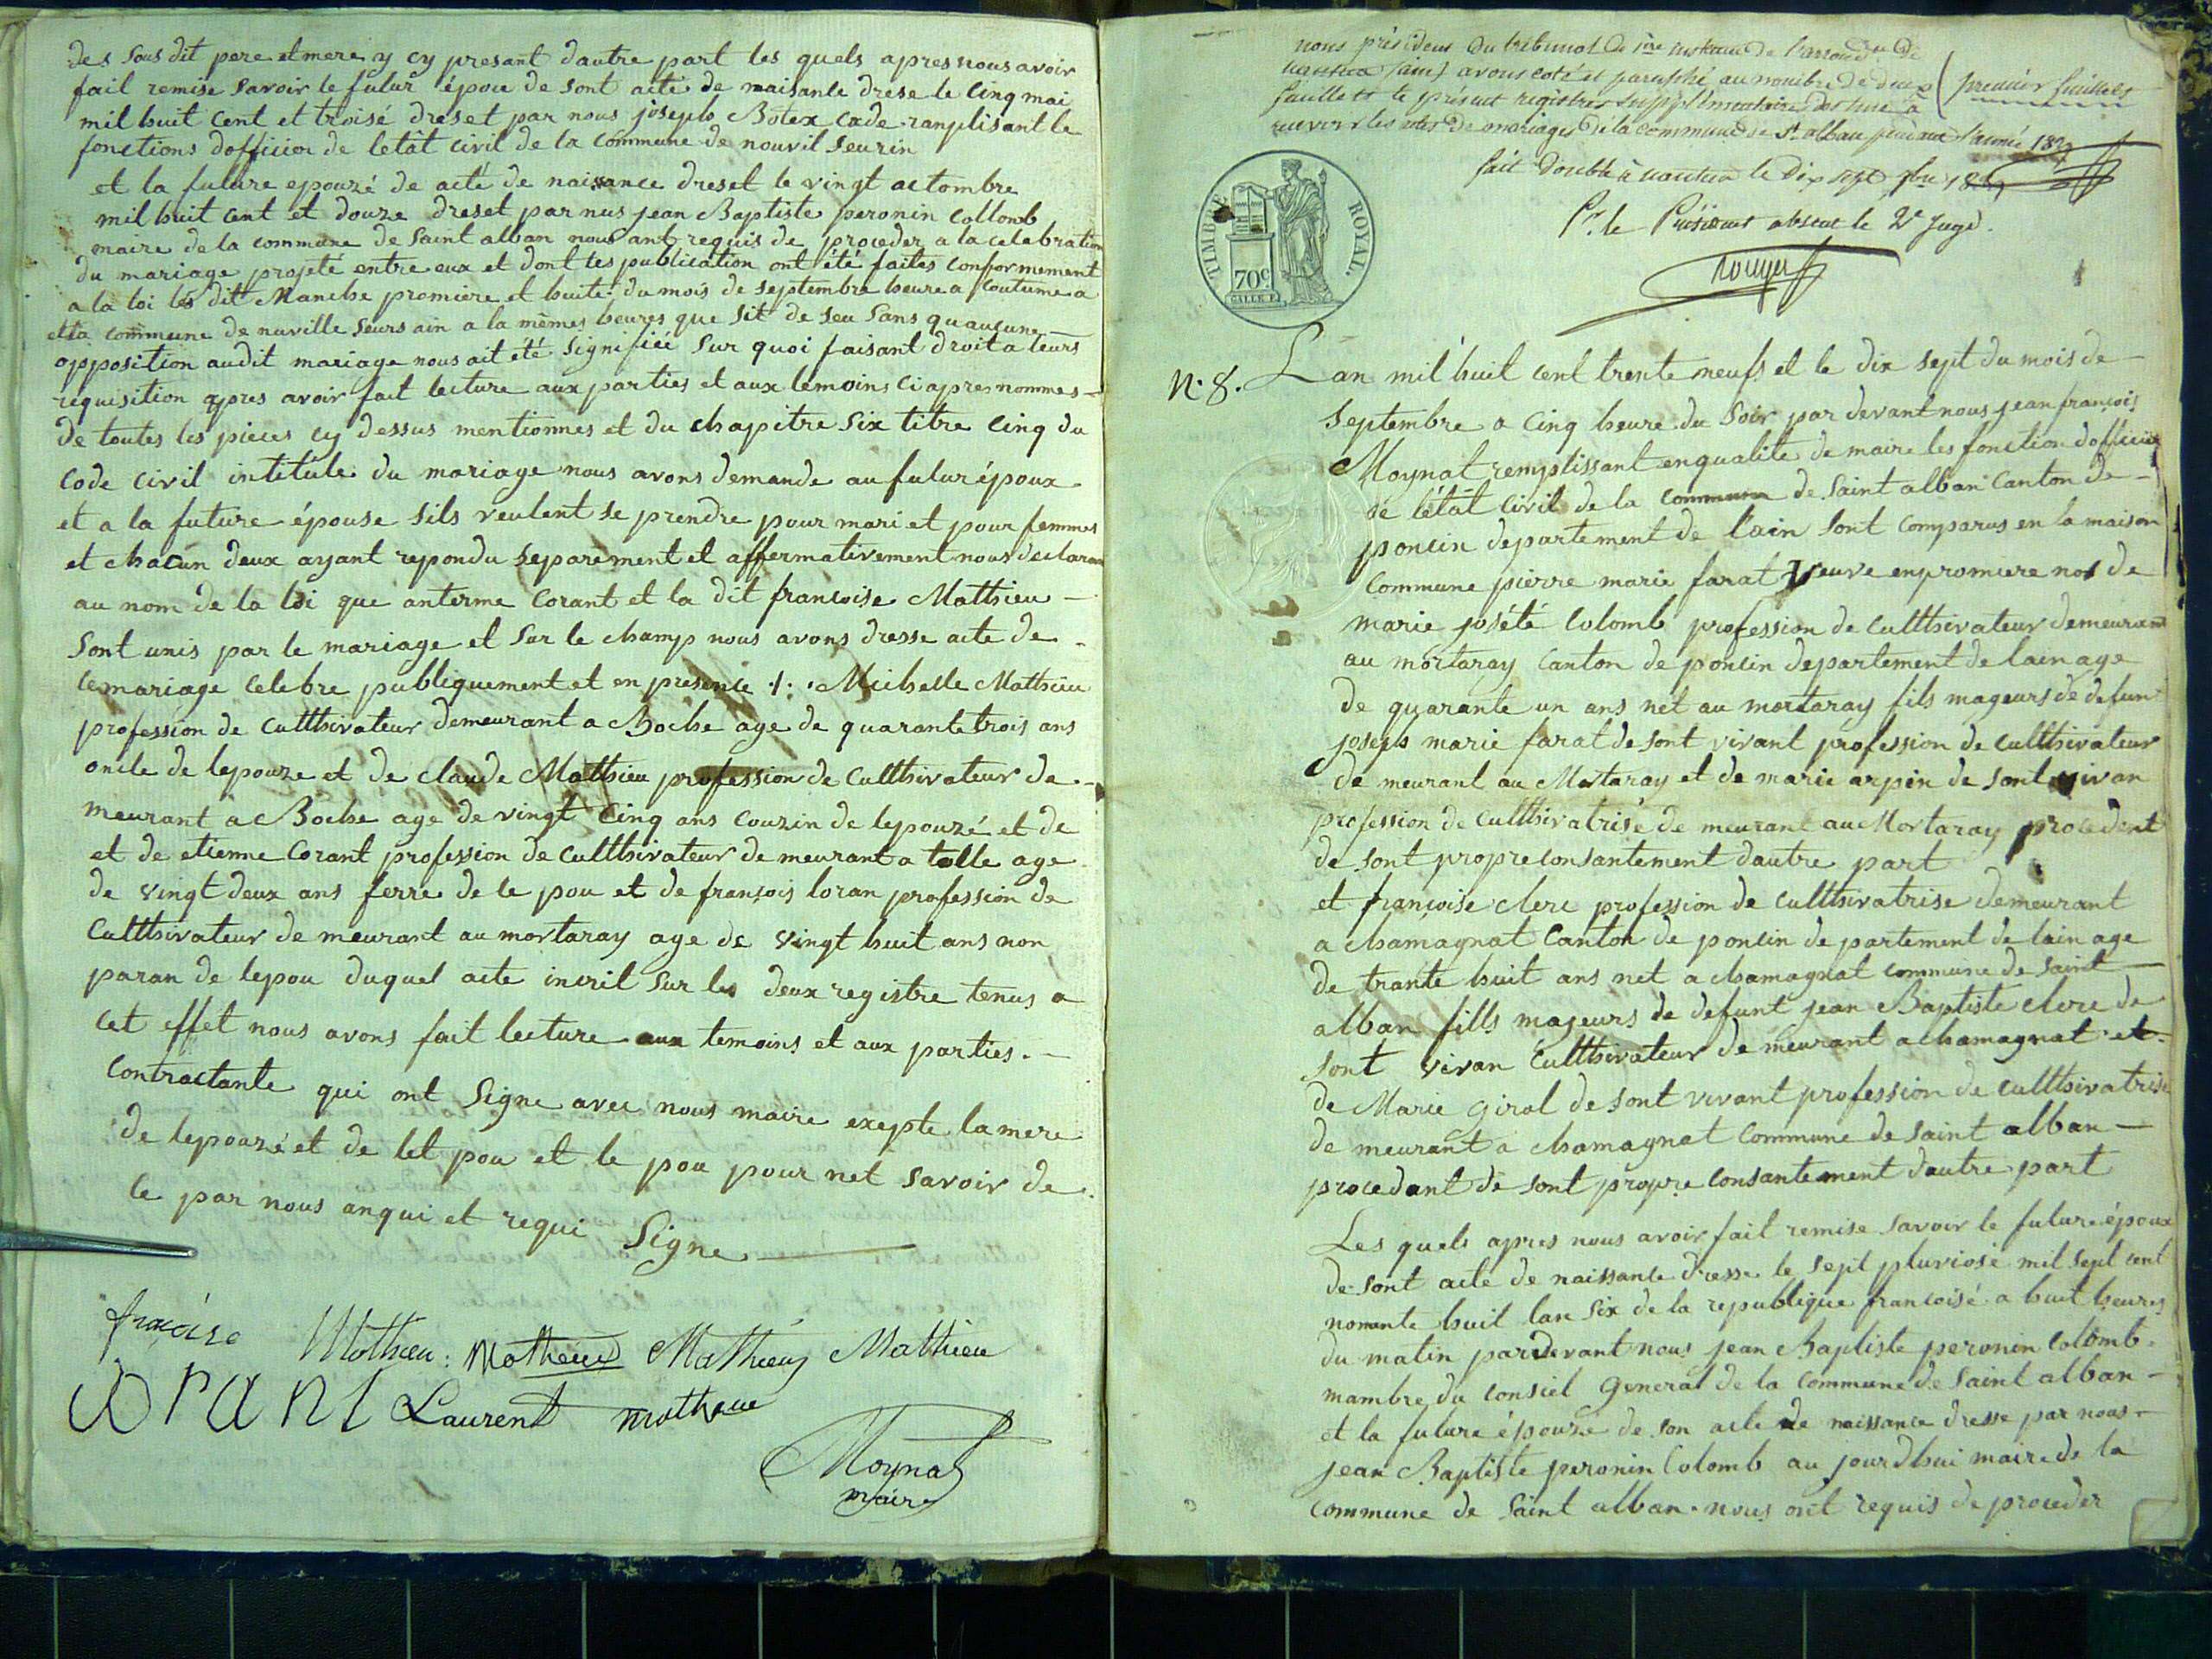 des sous dit pere et mere y cy presant dautre part les quels apres nous avoir
fait remise savoir le futur épou de sont acte de naisante drese le cinq mai
mil huit cent et troisé dreset par nous joseph Botex cade ranplisant le
fonctions dofficier de letât civil de la commune de nouvil seurin
et la future epouzé de acté de naissance dreset le vingt actombre
mil huit cent et douze dreset par nus jean Baptiste peronin collomb
maire de la commune de saint alban nous ant requis de proceder a la celebration
du mariage projeté entre eux et dont les publication ont été faites conformement
a la loi les dit Manche promiere et huite du mois de septembre heure a coutume a
et la commune de nuville seurs ain a la mêmes heures que sit de seu sans quaucune
opposition audit mariage nous ait été signifiée sur quoi faisant droit a leurs
requisition apres avoir fait lecture aux parties et aux temoins ci apres nommes
de toutes les pieces cy dessus mentionnes et du chapitre six titre cinq du
code civil intitule du mariage nous avons demande au futur époux
et a la future épouse sils veulent se prendre pour mari et pour femmes
et chacun deux ayant repondu separement et affermativement nous declaron
au nom de la loi que anterme Corant et la dit francoise Mathieu
sont unis par le mariage et sur le champ nous avons dresse acte de
ce mariage celebre publiquement et en presence Michelle Mathieu
profession de culthivateur demeurant a Boche age de quarante trois ans
oncle de lepouze et de claude Matthieu profession de culthivateur de
meurant a Boche age de vingt cinq ans couzin de lepouzé et de
et de etienne Corant profession de culthivateur de meurant a tolle age
de vingt deux ans ferre de le pou et de françois loran profession de
Culthivateur de meurant au mortaray age de vingt huit ans non
paran de lepou duquel acte incrit sur les deux registre tenus a
cet effet nous avons fait lecture aux temoins et aux parties.
Contractante qui ont signe avec nous maire exepte la mere
de lepouzé et de let pou et le pou pour net savoir de
ce par nous anqui et requi signe
francoise Mothieu Mathieu Mathieu Mathieu
corant Laurent mathieue
Moynat
maire
nous président du tribunal de 1ère instance de l'arrond. de
nantua (ain) avons coté et paraphé au nombre de deux
feuillets le présent registre supplémentaire destiné à
recevoir les actes de mariages de la commune de St alban pendant l'année 1839
premier feuillet
fait double à nantua le dix sept 7bre 1839
Pr. le Président absent le 2e Juge.
rouyer
TIMBRE ROYAL.
70c
N. 8.
Lan mil huit cent trente neufs et le dix sept du mois de
septembre a cinq heure du soir par devant nous jean françois
Moynat remplissant en qualite de maire les fonction dofficier
de létât civil de la commune de saint alban canton de
poncin departement de lain sont comparus en la maison
commune pierre marie farat veuve en promiere nos de
marie joséte colomb profession de culthivateur demeurant
au mortaray canton de poncin departement de lain age
de quarante un ans net au mortaray fils mageurs de defun
joseph marie farat de sont vivant profession de culthivateur
de meurant au Mortaray et de marie arpin de sont vivan
profession de culthivatrisé de meurant au Mortaray procedent
de sont propre consantement dautre part
et françoise clerc profession de culthivatrise demeurant
a chamagnat canton de poncin de partement de lain age
de trante huit ans net a chamagnat commune de saint
alban fills majeurs de defunt jean Baptiste clerc de
sont vivan culthivateur de meurant a chamagnat et
de Marie girol de sont vivant profession de culthivatrise
de meurant a chamagnat commune de saint alban
procedant de sont propre consantement dautre part
Les quels apres nous avoir fait remise savoir le future époux
de sont acte de naissance dresse le sept pluviose mil sept cent
nonante huit lan six de la republique francoisé a huit heures
du matin par devant nous jean Baptiste peronin colomb
mambre du consiel general de la commune de saint alban
et la future épouze de son acte de naissance dresse par nous
jean Baptiste peronin Colomb au jourdhui maire de la
commune de saint alban nous ont requis de proceder